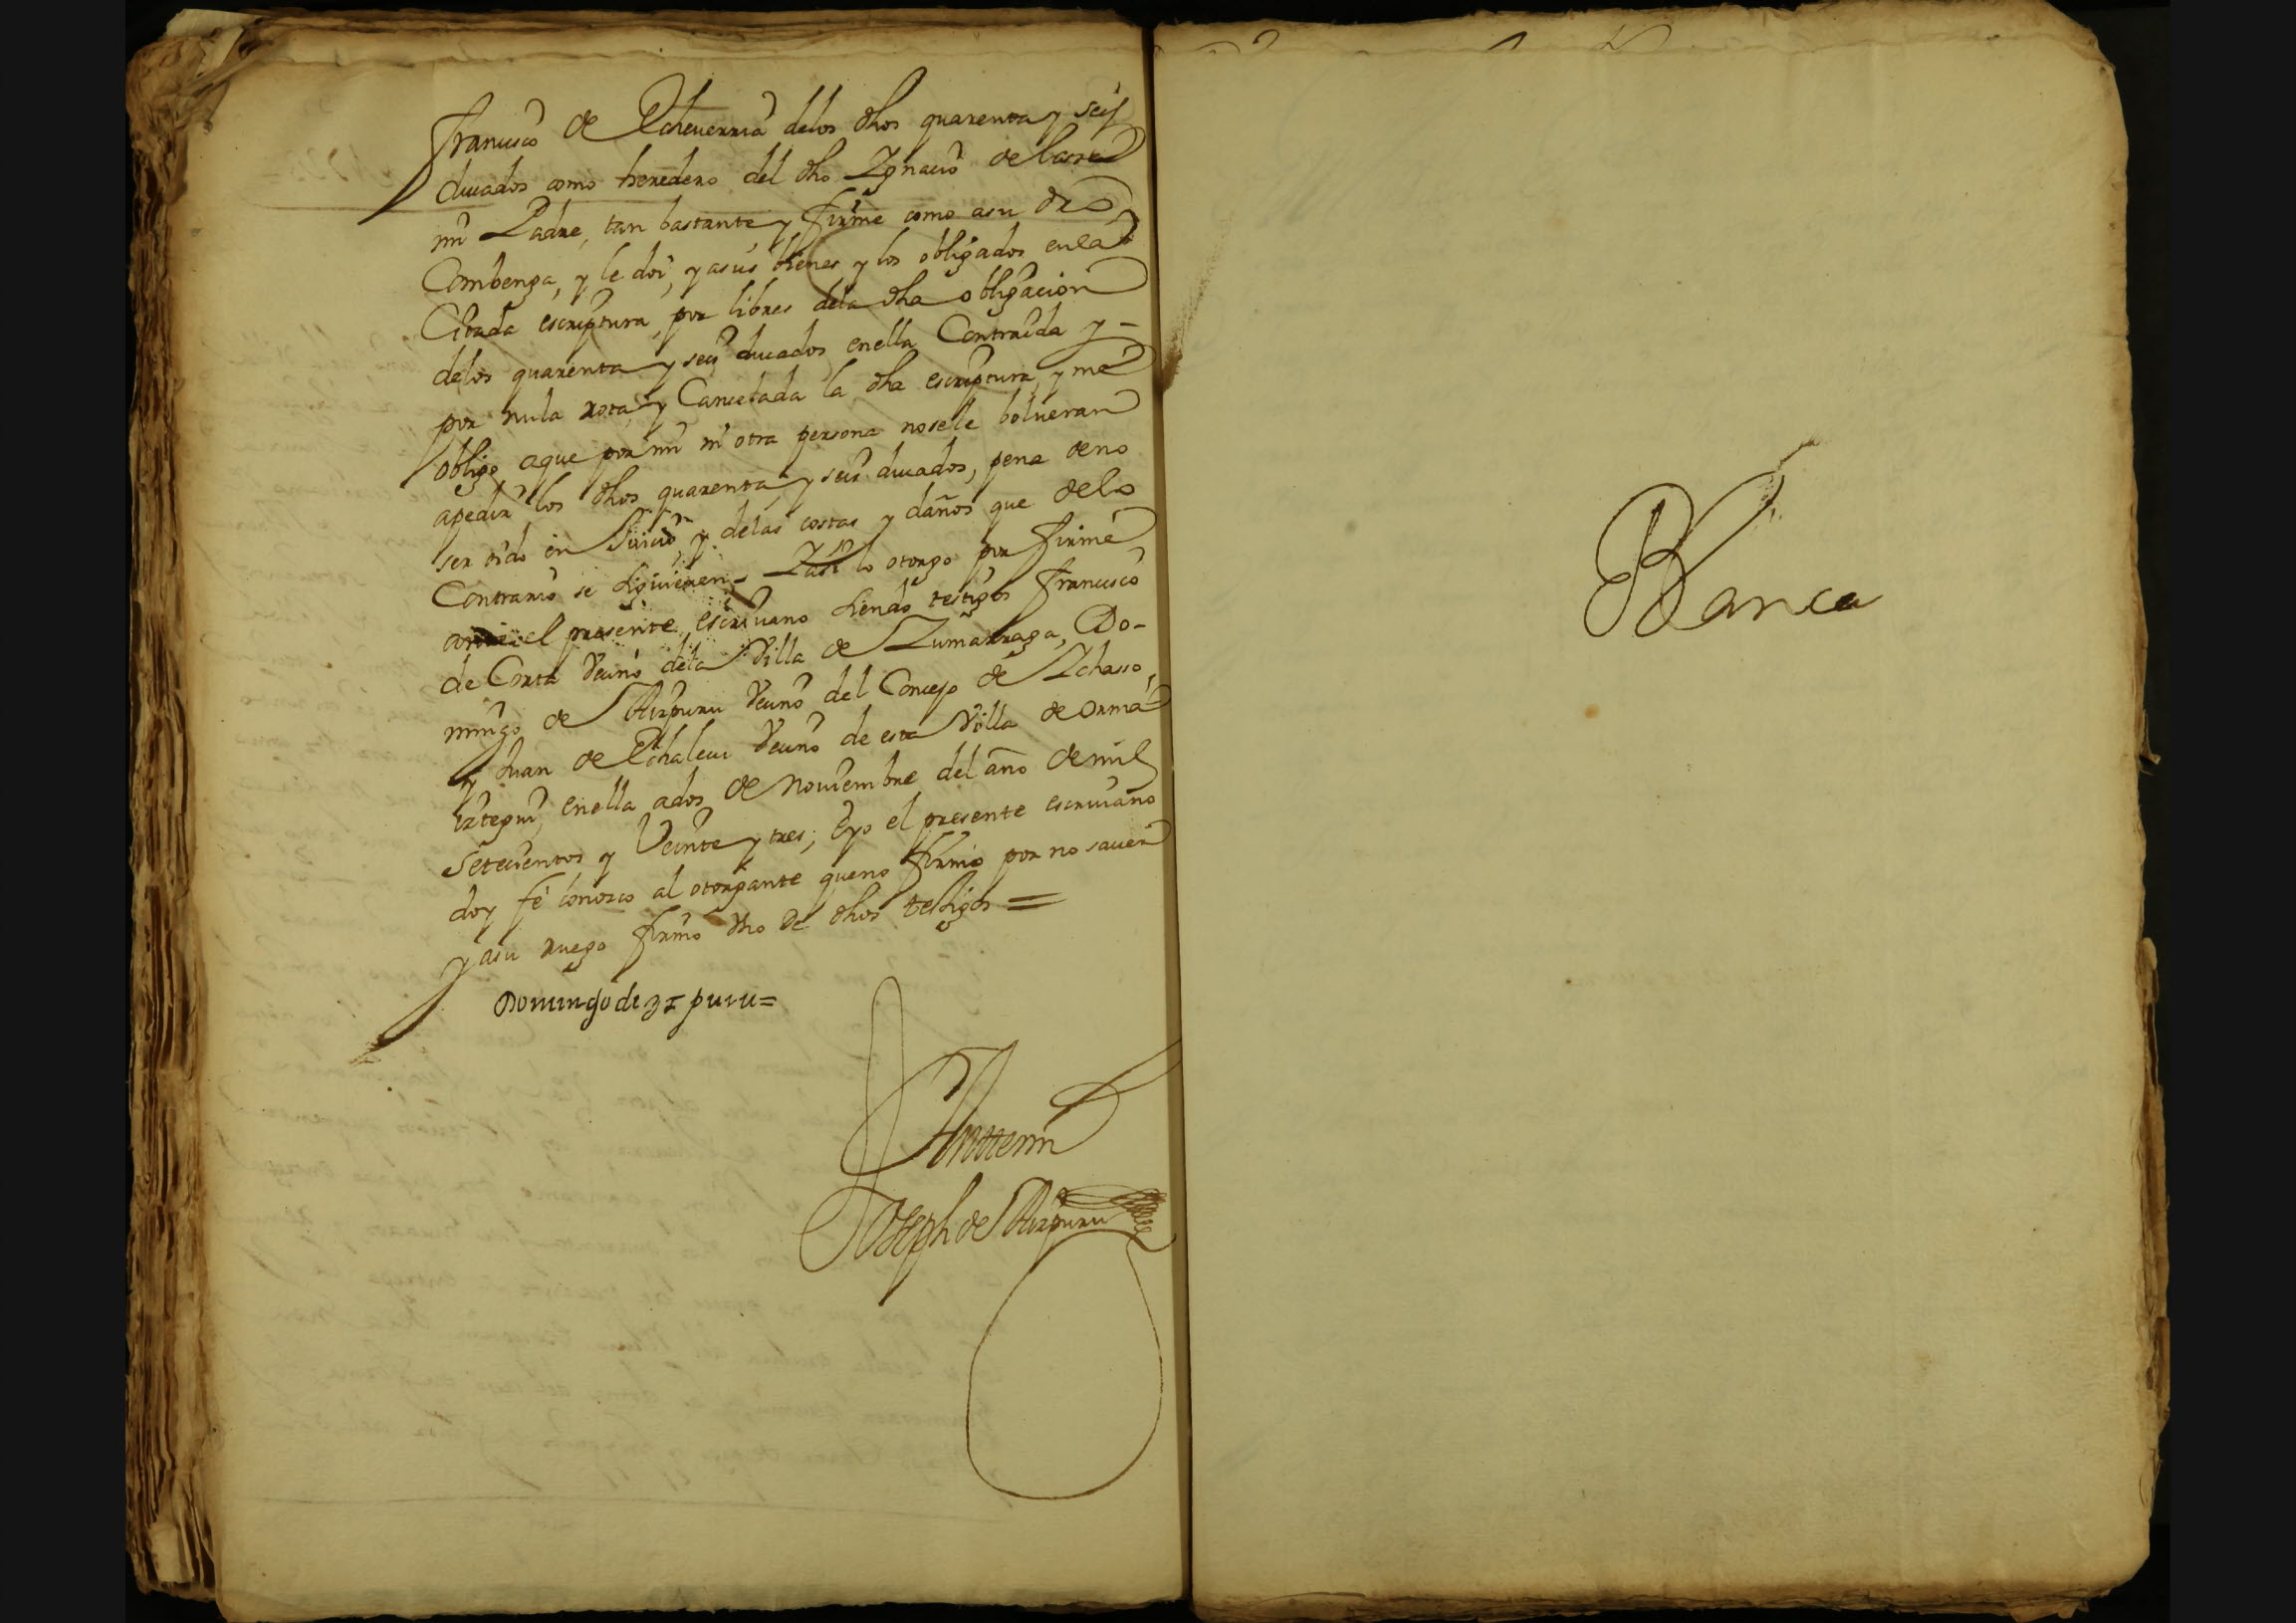 Francisco de Echeuerria delos dhos quarenta y seis
ducados como heredero del dho Ygnacio de
mi Padre, tan bastante y firme como asu dro
Combenga, y le doi, y asus bienes y los obligados enla
Citada escriptura, por libres dela dha obligacion
delos quarenta y seis ducados enella Contraida y -
por nula rota y Cancelada la dha escriptura, y me
obligo aque por mi ni otra persona nosele bolueran
apedir los dhos quarenta y seis ducados, pena deno
ser oido en Juicio, y delas costas y daños que delo
Contrario se siguieren - Y asi lo otorgo por firme
ante el presente escriuano siendo testigos Francisco
de Corta Vecino dela Villa de Zumarraga, Do-
mingo de Aizpuru Vecino del Concejo de Ychasso,
y Juan de Echaleui Vecino de esta Villa de Orma-
iztegui, enella ados de Nouiembre del año de mil
Setecientos y Veinte y tres; Eyo el presente escriuano
doy fe conozco al otorgante queno firmo por no sauer
y asu ruego firmo Vno de dhos testigos =
Domingo de Azpuru =
Ante mi
Joseph de Aizpuru
Blanca